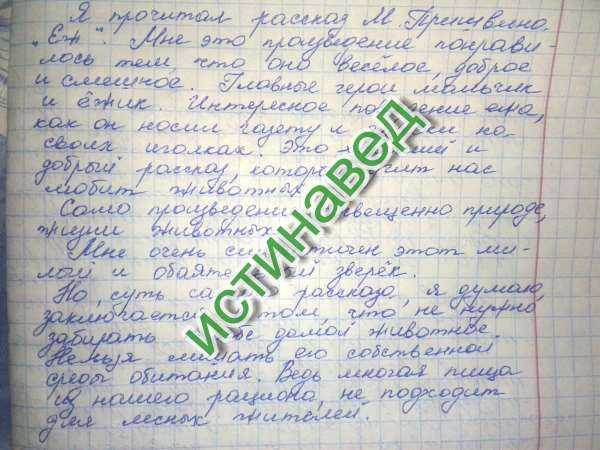 Я прочитал рассказ М. Пришвина
"Ёж". Мне это произведение понрави-
лось тем, что оно весёлое, доброе
и смешное. Главные герои мальчик
и ёжик. Интересное по ение ежа,
как он носил газету и на
своих иголках. Это и
добрый рассказ, котор ит нас
любить животных
Само произведени вещенно природе,
жизни животных
Мне очень сим тичен этот ми-
лый и обаяте й зверёк.
Но, суть са рассказа, я думаю,
заключается том, что не нужно
забирать домой животное.
Нельзя его собственной
среды обитания. Ведь многая пища
из нашего рациона, не подходит
для лесных жителей.
ИСТИНАВЕД